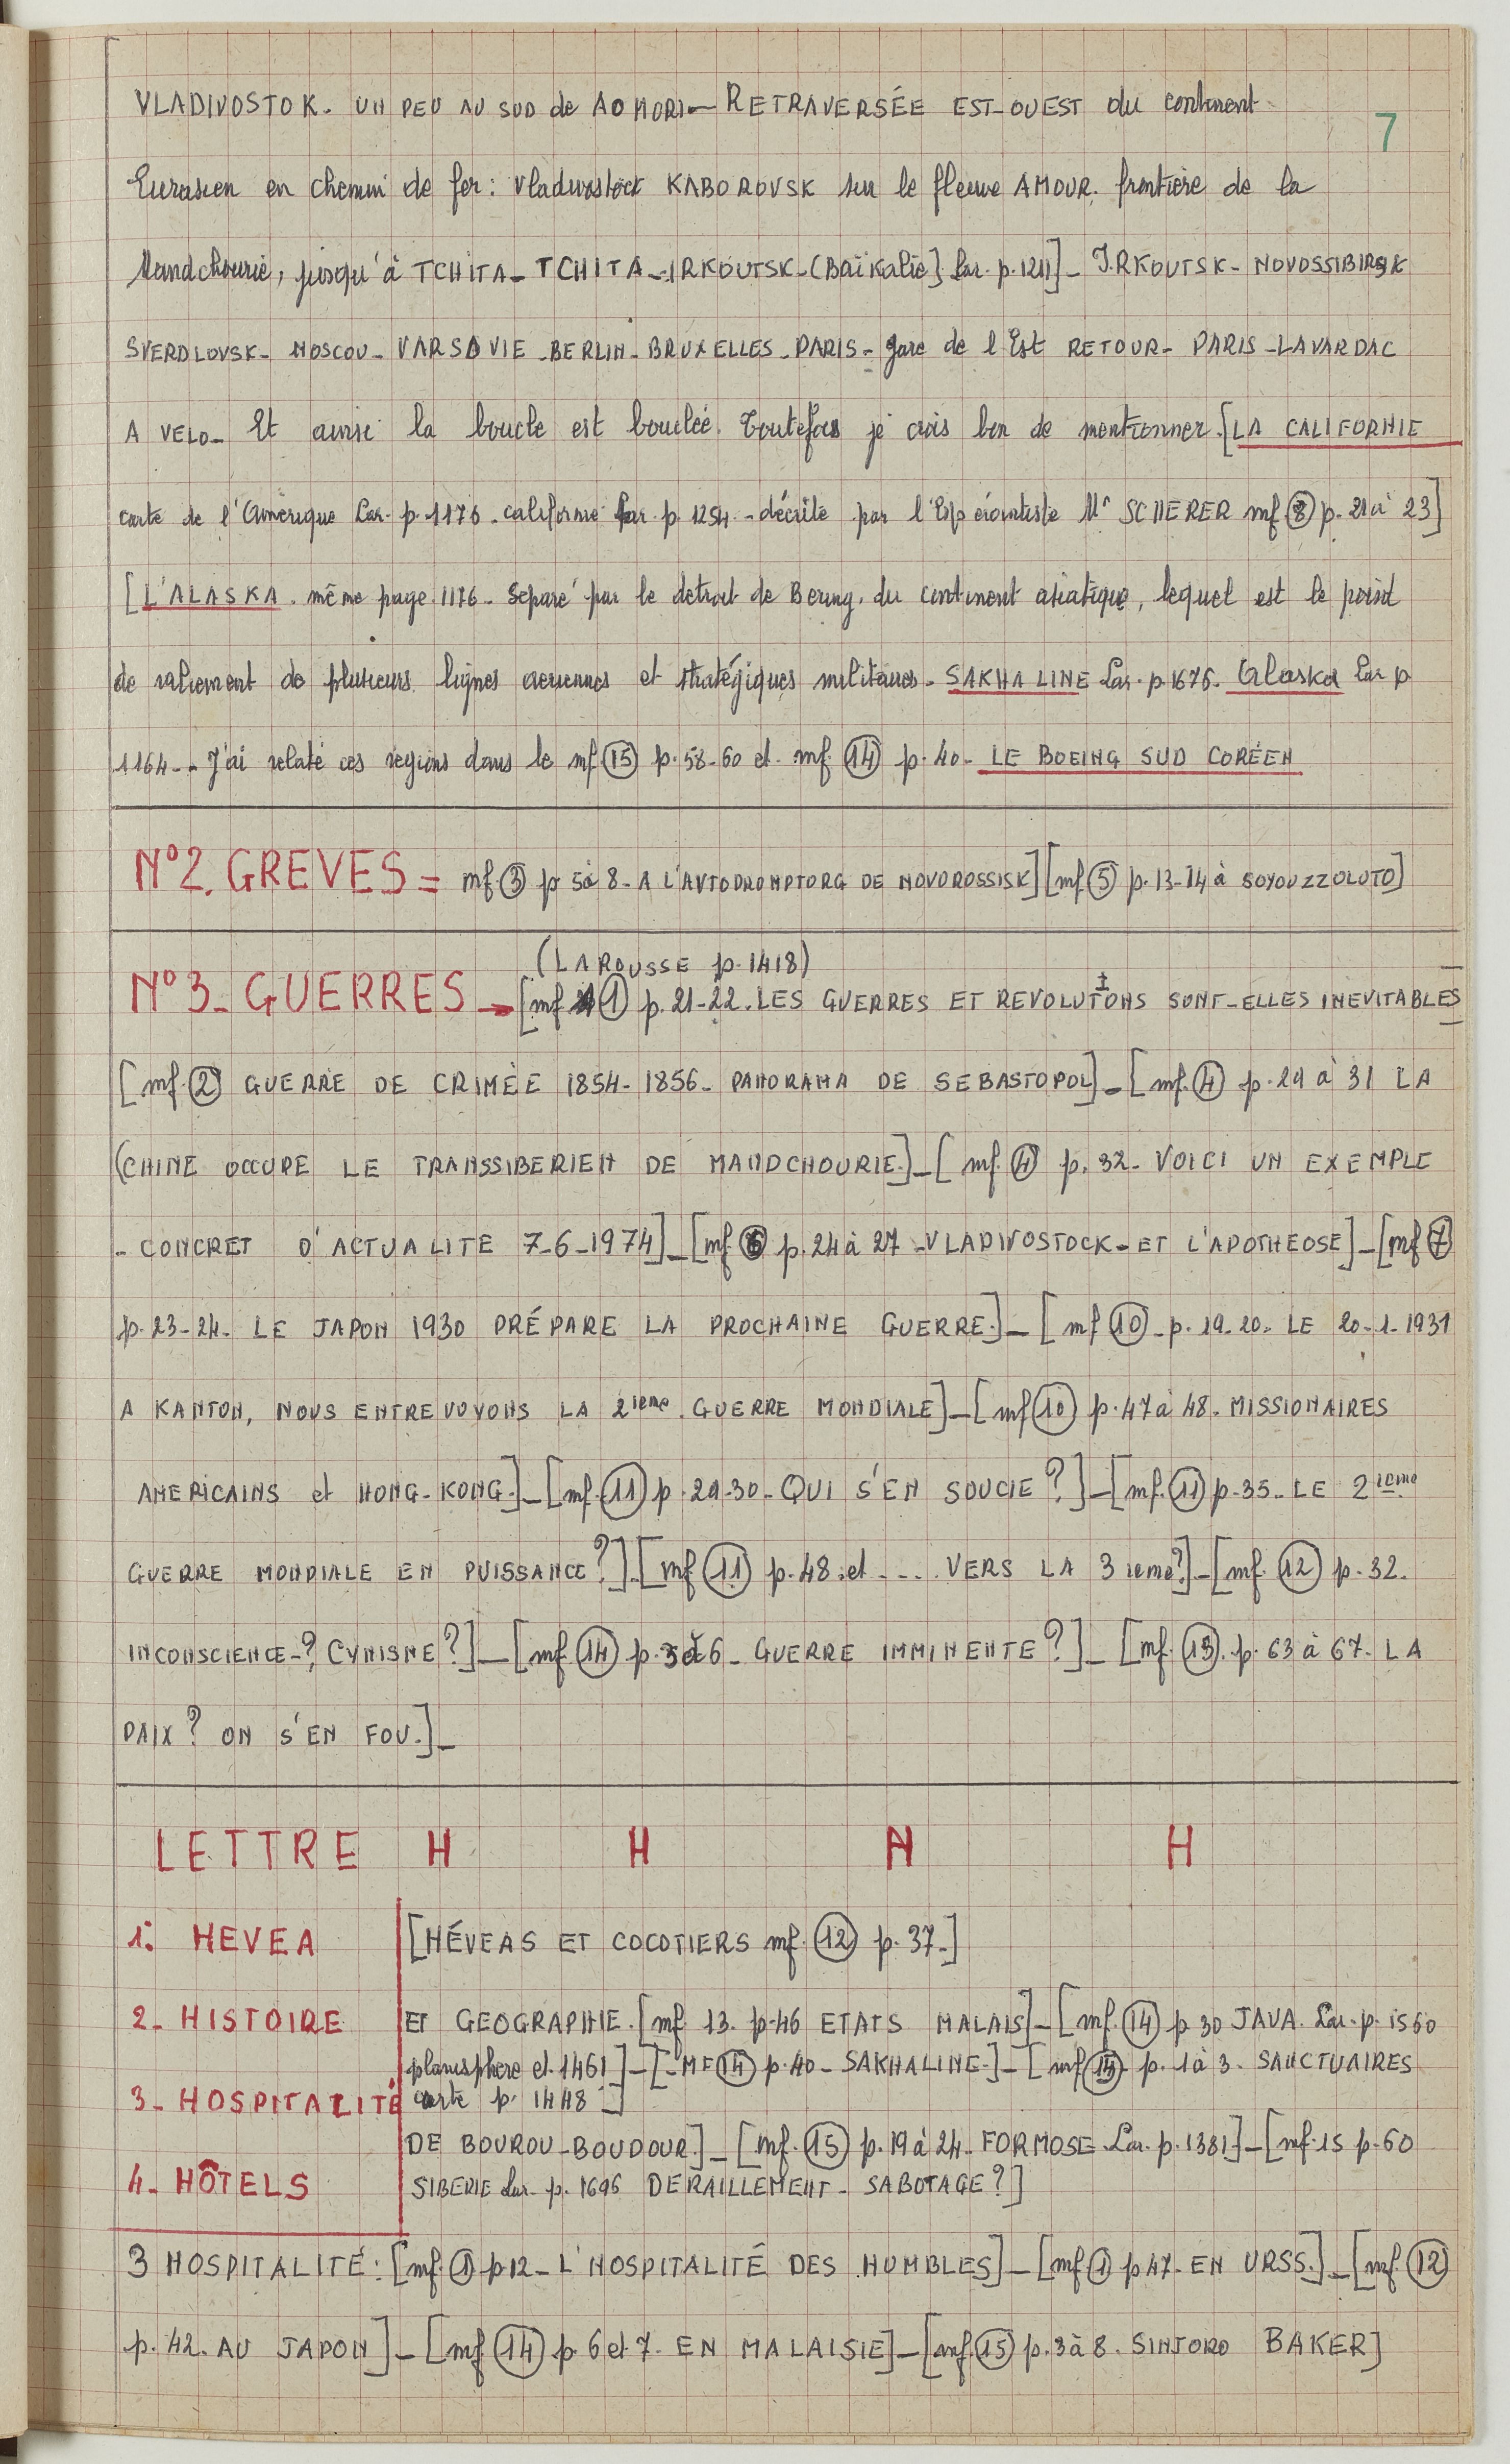 7
VLADIVOSTOK. UN PEU AU SUD de AOMORI_ RETRAVERSÉE EST_OUEST du continent
Eurasien en chemin de fer: Vladivostock KABOROVSK sur le fleuve AMOUR. frontière de la
Mandchourie, jusqu'à TCHITA_ TCHITA_IRKOUTSK_(Baïkalie] Lar. p.1211]_ IRKOUTSK_ NOVOSSIBIRSK
SVERDLOVSK_ MOSCOU_ VARSOVIE_BERLIN_BRUXELLES_PARIS_ gare de l'Est RETOUR_ PARIS_LAVARDAC
A VELO_ Et ainsi la boucle est bouclée. Toutefois je crois bon de mentionner.[LA CALIFORNIE
carte de l'Amérique Lar. p.1176_ californie Lar. p.1254._décrite par l'Espérantiste Mr SCHERER mf (8) p. 21 à 23]
[L'ALASKA. même page.1176_ Séparé par le detroit de Bering, du continent asiatique, lequel est le point
de raliement de plusieurs lignes aeriennes et stratégiques militaires_ SAKHALINE Lar. p.1676. Alaska Lar p
1164_. J'ai relaté ces régions dans le mf.(15) p.58_60 et. mf.(14) p.40_ LE BOEING SUD CORÉEN
N°2. GREVES = mf(3) p 5à 8_ A L'AVTODROMPTORG DE NOVOROSSISK] [mf.(5) p.13-14 à SOYOUZZOLOTO]
(LAROUSSE p.1418)
N°3_ GUERRES_ [mf (1) p.21-22. LES GUERRES ET REVOLUTIONS SONT_ELLES INEVITABLES
[mf.(2) GUERRE DE CRIMÉE 1854-1856_ PANORAMA DE SEBASTOPOL]_[mf.(4) p.29 à 31 LA
(CHINE OCCUPE LE TRANSSIBERIEN DE MANDCHOURIE.]_[mf.(4) p.32_ VOICI UN EXEMPLE
_ CONCRET D'ACTUALITE 7-6-1974]_[mf (6) p.24 à 27_VLADIVOSTOCK_ET L'APOTHEOSE]_[mf (7)
p.23-24. LE JAPON 1930 PRÉPARE LA PROCHAINE GUERRE.]_[mf (10)_p.19.20. LE 20-1-1931
A KANTON, NOUS ENTREVOYONS LA 2ieme. GUERRE MONDIALE]_[mf (10) p.47 à 48. MISSIONAIRES
AMERICAINS et HONG-KONG.]_[mf.(11) p.29-30_ QUI S'EN SOUCIE?]_[mf.(11) p.35_ LE 2ieme
GUERRE MONDIALE EN PUISSANCE?]_[mf (11) p.48.et.... VERS LA 3ieme?]_[mf. (12) p.32.
INCONSCIENCE_? CYNISME?]_[mf.(14) p.3 à 6_ GUERRE IMMINENTE?]_[mf.(13). p.63 à 67. LA
PAIX? ON S'EN FOU.]_
LETTRE H H H H
1: HEVEA [HÉVEAS ET COCOTIERS mf.(12) p.37_]
2_ HISTOIRE ET GEOGRAPHIE.[mf. 13. p.46 ETATS MALAIS]_[mf.(14) p 30 JAVA. Lar. p.1560
planisphere et.1461]_[_MF(14) p.40_ SAKHALINE.]_[mf(14) p. 1 à 3_ SANCTUAIRES
3_ HOSPITALITÉ carte p. 1448]
DE BOUROU_BOUDOUR.]_[mf.(15) p.19 à 24_ FORMOSE Lar. p.1381]_[mf.15 p.60
4_ HÔTELS SIBERIE Lar. p.1696 DERAILLEMENT_ SABOTAGE?]
3 HOSPITALITÉ: [mf.(1) p12_ L'HOSPITALITÉ DES HUMBLES]_[mf(1) p47. EN URSS.]_[mf.(12)
p.42. AU JAPON]_[mf.(14) p.6 et 7. EN MALAISIE]_[mf.(15) p.3 à 8. SINJORO BAKER]